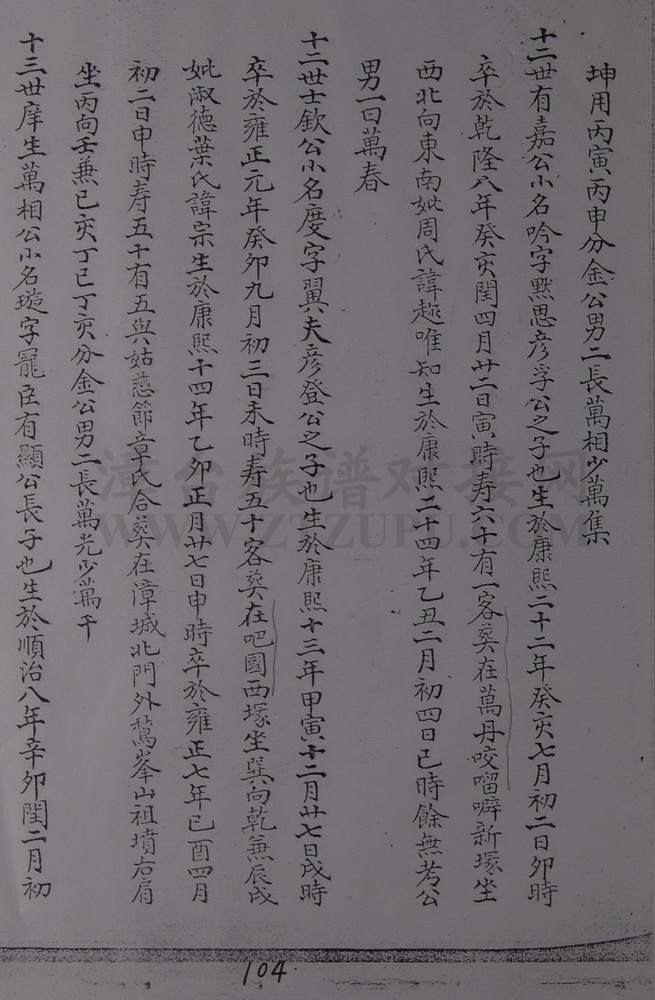 坤用丙寅丙申分金公男二長萬相少萬集
十二世有嘉公小名吟字默思彦孚公之子也生於康熙二十二年癸亥七月初二日卯時
卒於乾隆八年癸亥閏四月廿二日寅時寿六十有一客葬在萬丹咬㗂噼新塚坐
西北向東南妣周氏諱趣唯知生於康熙二十四年乙丑二月初四日巳時餘無考公
男一曰萬春
十二世士欽公小名度字翼夫彦登公之子也生於康熙十三年甲寅十二月廿七日戌時
卒於雍正元年癸卯九月初三日未時寿五十客葬在吧國西塚坐巽向乾兼辰戌
妣淑德葉氏諱宗生於康熙十四年乙卯正月廿七日申時卒於雍正七年己酉四月
初二日申時寿五十有五與姑慈節章氏合葬在漳城北門外鵞峯山祖墳右肩
坐丙向壬兼巳亥丁巳丁亥分金公男二長萬光少萬千
十三世庠生萬相公小名璇字寵臣有顯公長子也生於順治八年辛卯閏二月初
漳台族谱对接网
WWW.ZTZUPU.COM
104